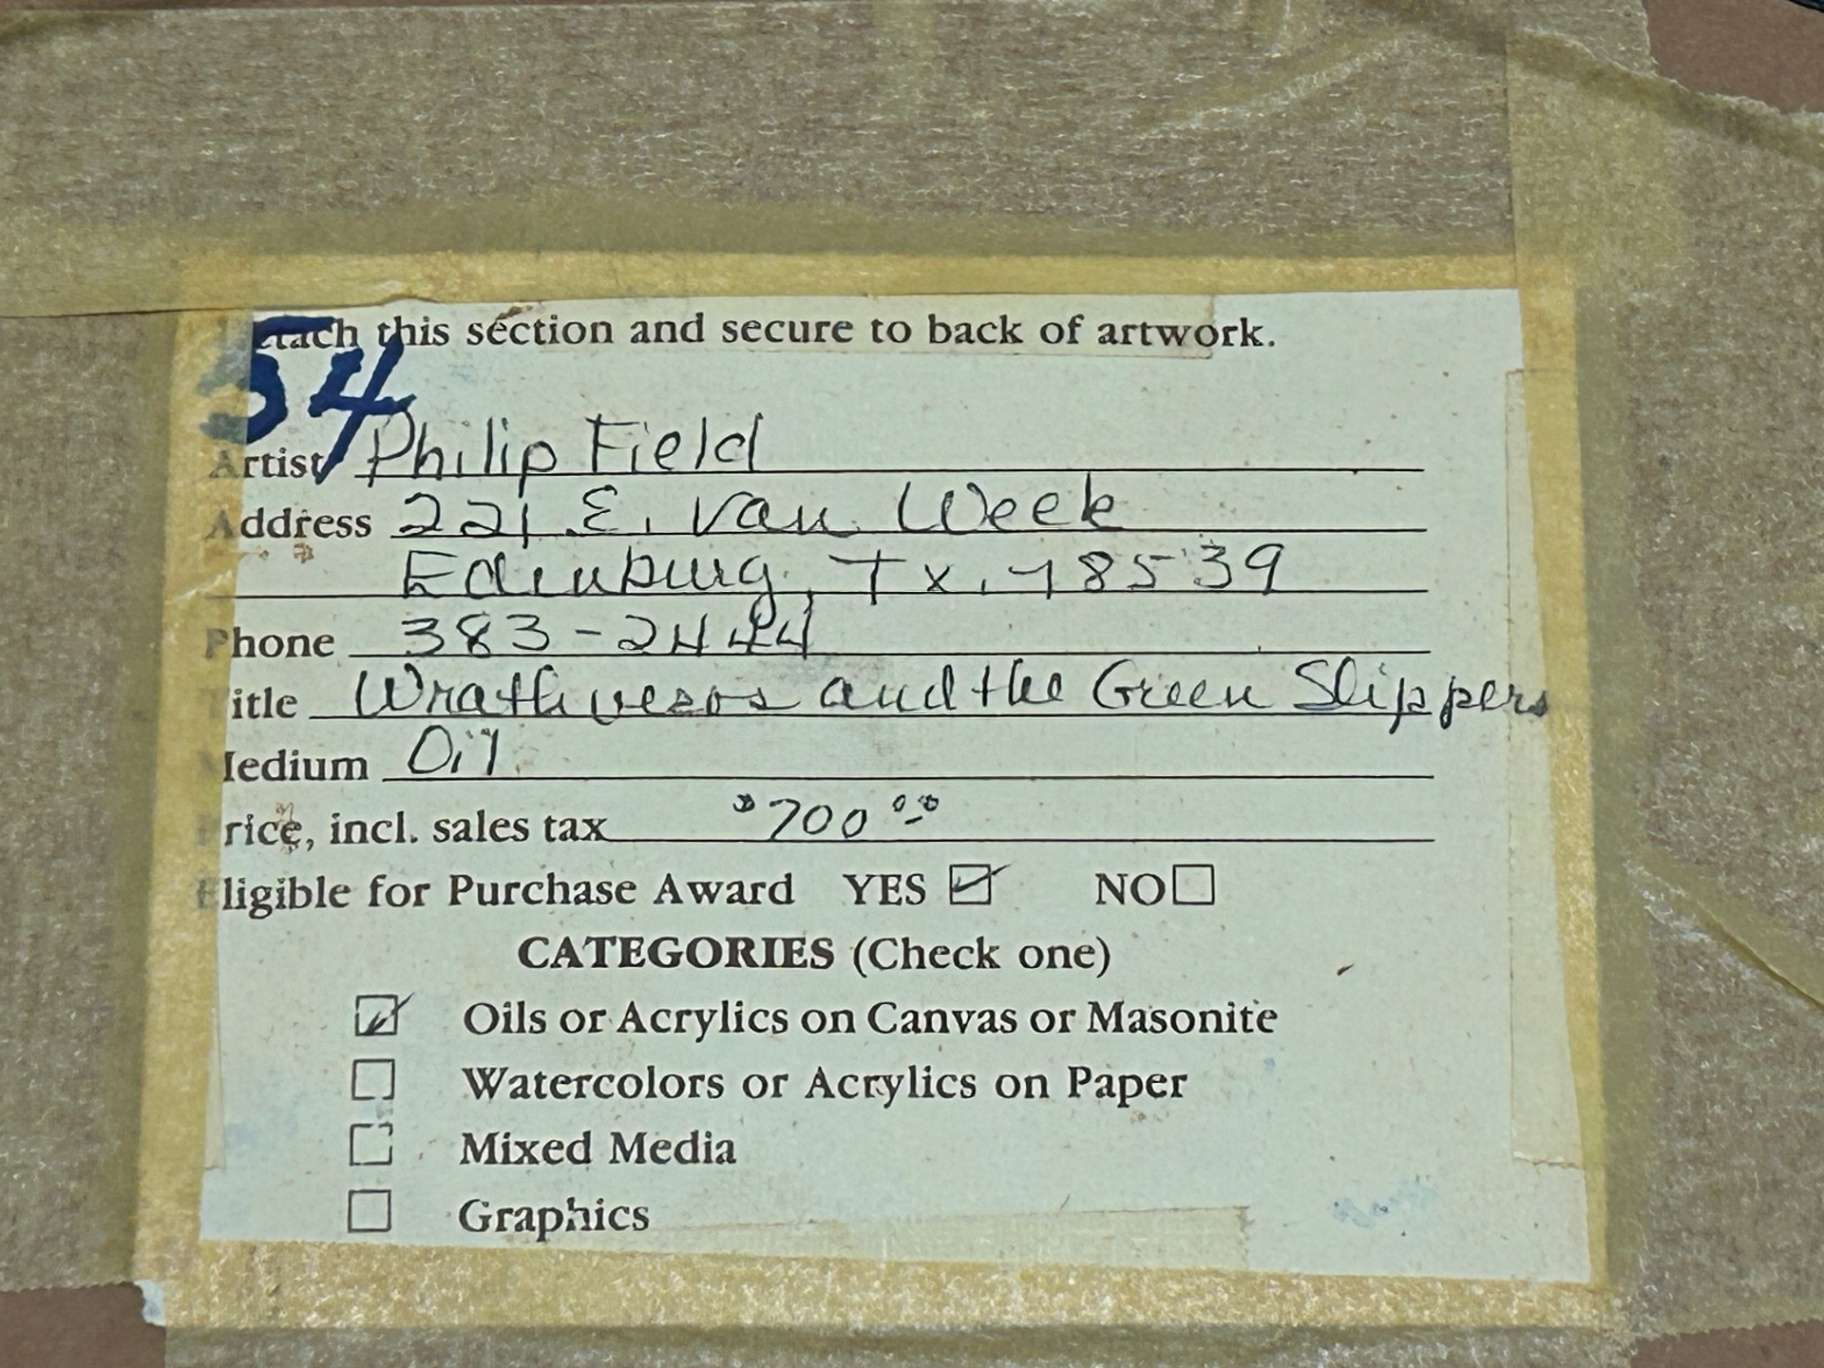 etach this section and secure to back of artwork.
54
Artist Philip Field
Address 221 E. Van Week
Edinburg, Tx. 78539
Phone 383-2444
Title and the Green Slippers
Medium Oil
Price, incl. sales tax $700.00
Eligible for Purchase Award YES NO
CATEGORIES (Check one)
Oils or Acrylics on Canvas or Masonite
Watercolors or Acrylics on Paper
Mixed Media
Graphics